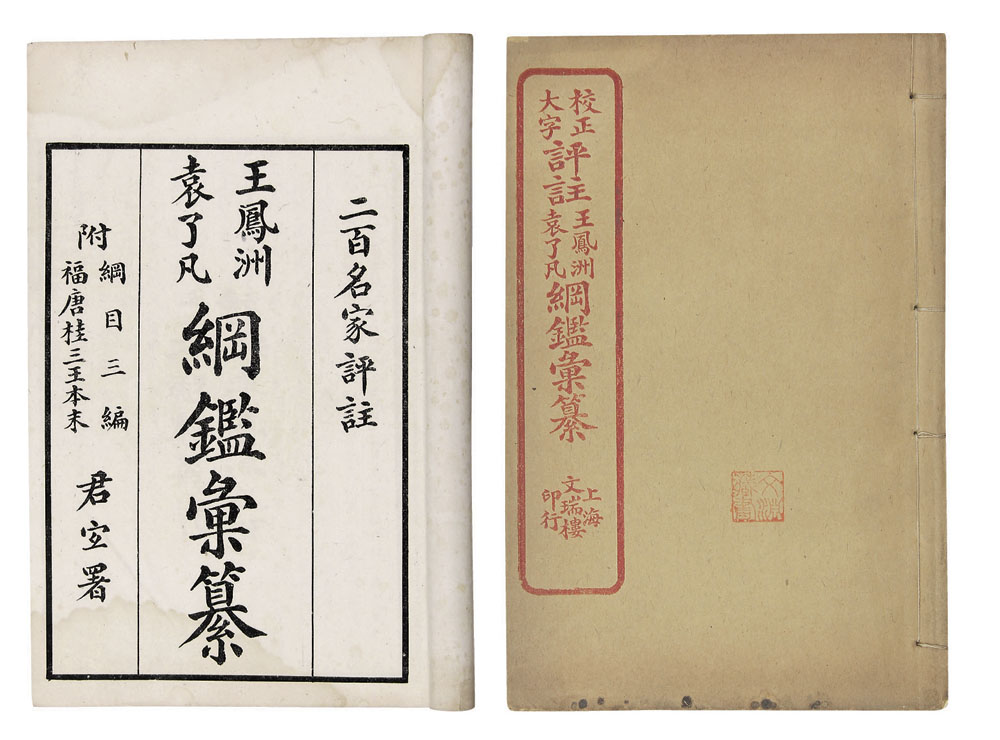 二百名家評註
王鳳洲
袁了凡
綱鑑彙纂
附
綱目三編
福唐桂三王本末
君宜署
校正
大字
評註
王鳳洲
袁了凡
綱鑑彙纂
上海
文瑞樓
印行